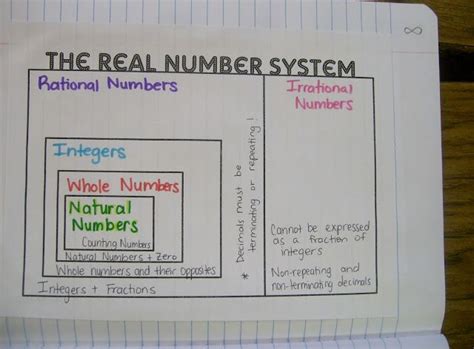 8
THE REAL NUMBER SYSTEM
Rational Numbers
Integers
Whole Numbers
Natural
Numbers
Counting Numbers
Natural Numbers + Zero
Whole numbers and their opposites
Integers + Fractions
* Decimals must be
terminating or repeating!
Irrational
Numbers
Cannot be expressed
as a fraction of
integers
Non-repeating and
non-terminating decimals